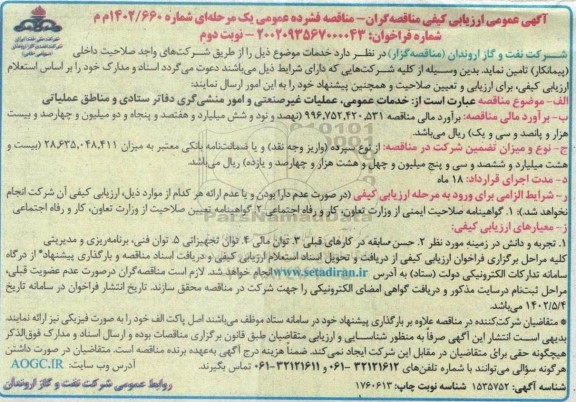 آگهی عمومی ارزیابی کیفی مناقصه‌گران – مناقصه فشرده عمومی یک مرحله‌ای شماره ۱۴۰۲/۶۶۰م م
شماره فراخوان: ۲۰۰۲۰۹۳۵۶۷۰۰۰۰۴۳ – نوبت دوم
شرکت نفت و گاز اروندان (مناقصه‌گزار) در نظر دارد خدمات موضوع ذیل را از طریق شرکت‌های واجد صلاحیت داخلی
(پیمانکار) تامین نماید. بدین وسیله از کلیه شرکت‌هایی که دارای شرایط ذیل می‌باشند دعوت می‌گردد اسناد و مدارک خود را بر اساس استعلام
ارزیابی کیفی، برای ارزیابی و تعیین صلاحیت و همچنین پیشنهاد خود را به این امور ارسال نمایند:
الف – موضوع مناقصه عبارت است از: خدمات عمومی، عملیات غیرصنعتی و امور منشی‌گری دفاتر ستادی و مناطق عملیاتی
ب – برآورد مالی مناقصه: برآورد مالی مناقصه ۹۹۶,۷۵۲,۴۲۰,۵۳۱ (نهصد و نود و شش میلیارد و هفتصد و پنجاه و دو میلیون و چهارصد و بیست
هزار و پانصد و سی و یک) ریال می‌باشد.
ج – نوع و میزان تضمین شرکت در مناقصه: از نوع سپرده (واریز وجه نقد) و یا ضمانت‌نامه بانکی معتبر به میزان ۲۸,۶۳۵,۰۴۸,۴۱۱ (بیست و
هشت میلیارد و ششصد و سی و پنج میلیون و چهل و هشت هزار و چهارصد و یازده) ریال می‌باشد.
د – مدت اجرای قرارداد: ۱۸ ماه
ر – شرایط الزامی برای ورود به مرحله ارزیابی کیفی (در صورت عدم دارا بودن و یا عدم ارائه هر کدام از موارد ذیل، ارزیابی کیفی آن شرکت انجام
نخواهد شد): ۱. گواهینامه صلاحیت ایمنی از وزارت تعاون، کار و رفاه اجتماعی ۲. گواهینامه تعیین صلاحیت از وزارت تعاون، کار و رفاه اجتماعی
ز – معیارهای ارزیابی کیفی:
۱. تجربه و دانش در زمینه مورد نظر ۲. حسن سابقه در کارهای قبلی ۳. توان مالی ۴. توان تجهیزاتی ۵. توان فنی، برنامه‌ریزی و مدیریتی
کلیه مراحل برگزاری فراخوان ارزیابی کیفی از دریافت و تحویل اسناد استعلام ارزیابی کیفی و دریافت اسناد مناقصه و بارگذاری پیشنهاد* از درگاه
سامانه تدارکات الکترونیکی دولت (ستاد) به آدرس www.setadiran.ir انجام خواهد شد. لازم است مناقصه‌گران درصورت عدم عضویت قبلی،
مراحل ثبت‌نام درسایت مذکور و دریافت گواهی امضای الکترونیکی را جهت شرکت در مناقصه محقق سازند. تاریخ انتشار فراخوان در سامانه تاریخ
۱۴۰۲/۵/۴ می‌باشد.
* متقاضیان شرکت‌کننده در مناقصه علاوه بر بارگذاری پیشنهاد خود در سامانه ستاد موظف می‌باشند اصل پاکت الف خود را به صورت فیزیکی نیز ارائه نمایند.
بدیهی است انتشار این آگهی صرفاً به منظور شناسایی و ارزیابی متقاضیان طبق قانون برگزاری مناقصات بوده و ارسال اسناد و مدارک فوق‌الذکر
هیچگونه حقی برای متقاضیان در مقابل این شرکت ایجاد نمی‌کند. ضمناً هزینه درج آگهی به‌عهده برنده مناقصه است. متقاضیان در صورت داشتن
هرگونه سوالی می‌توانند با شماره تلفن‌های ۳۲۱۲۱۶۱۲-۰۶۱ و ۳۲۱۲۱۶۱۱-۰۶۱ تماس بگیرند. آدرس وب سایت: AOGC.IR
شناسه آگهی ۱۵۳۵۷۵۲ شناسه نوبت چاپ: ۱۷۶۰۶۱۳
روابط عمومی شرکت نفت و گاز اروندان